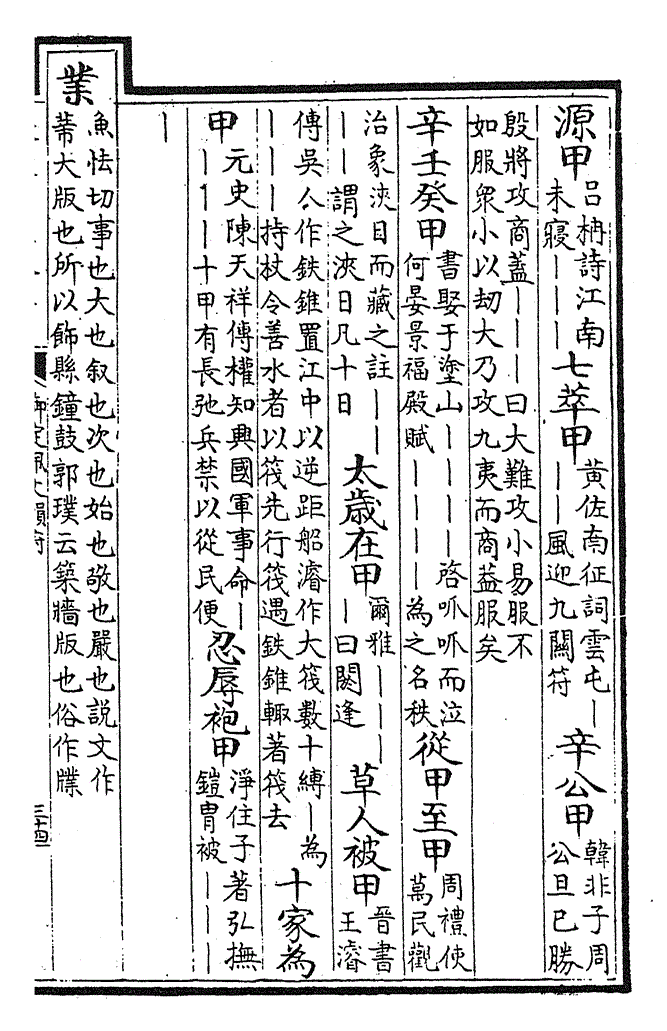 源甲 呂枏詩江南未寢——— 七萃甲 黃佐南征詞雲屯———風迎九關符 辛公甲 韓非子周公旦已勝
殷將攻商蓋———曰大難攻小易服不如服眾小以劫大乃攻九夷而商葢服矣
辛壬癸甲 書娶于塗山————啓呱呱而泣何晏景福殿賦————為之名秩 從甲至甲 周禮使萬民觀
治象浹日而藏之註————謂之浹日凡十日 太歲在甲 爾雅————曰閼逢 草人被甲 晉書王濬
傳吳人作鉄錐置江中以逆距船濬作大筏數十縛—為———持杖令善水者以筏先行筏遇鉄錐輙著筏去 十家為
甲 元史陳天祥傳權知興國軍事命—————十甲有長弛兵禁以從民便 忍辱袍甲 淨住子著弘撫鎧冑被———
—
業 魚怯切事也大也叙也次也始也敬也嚴也説文作
大版也所以飾縣鐘鼓郭璞云築牆版也俗作牒
御定佩文韻府
三十四